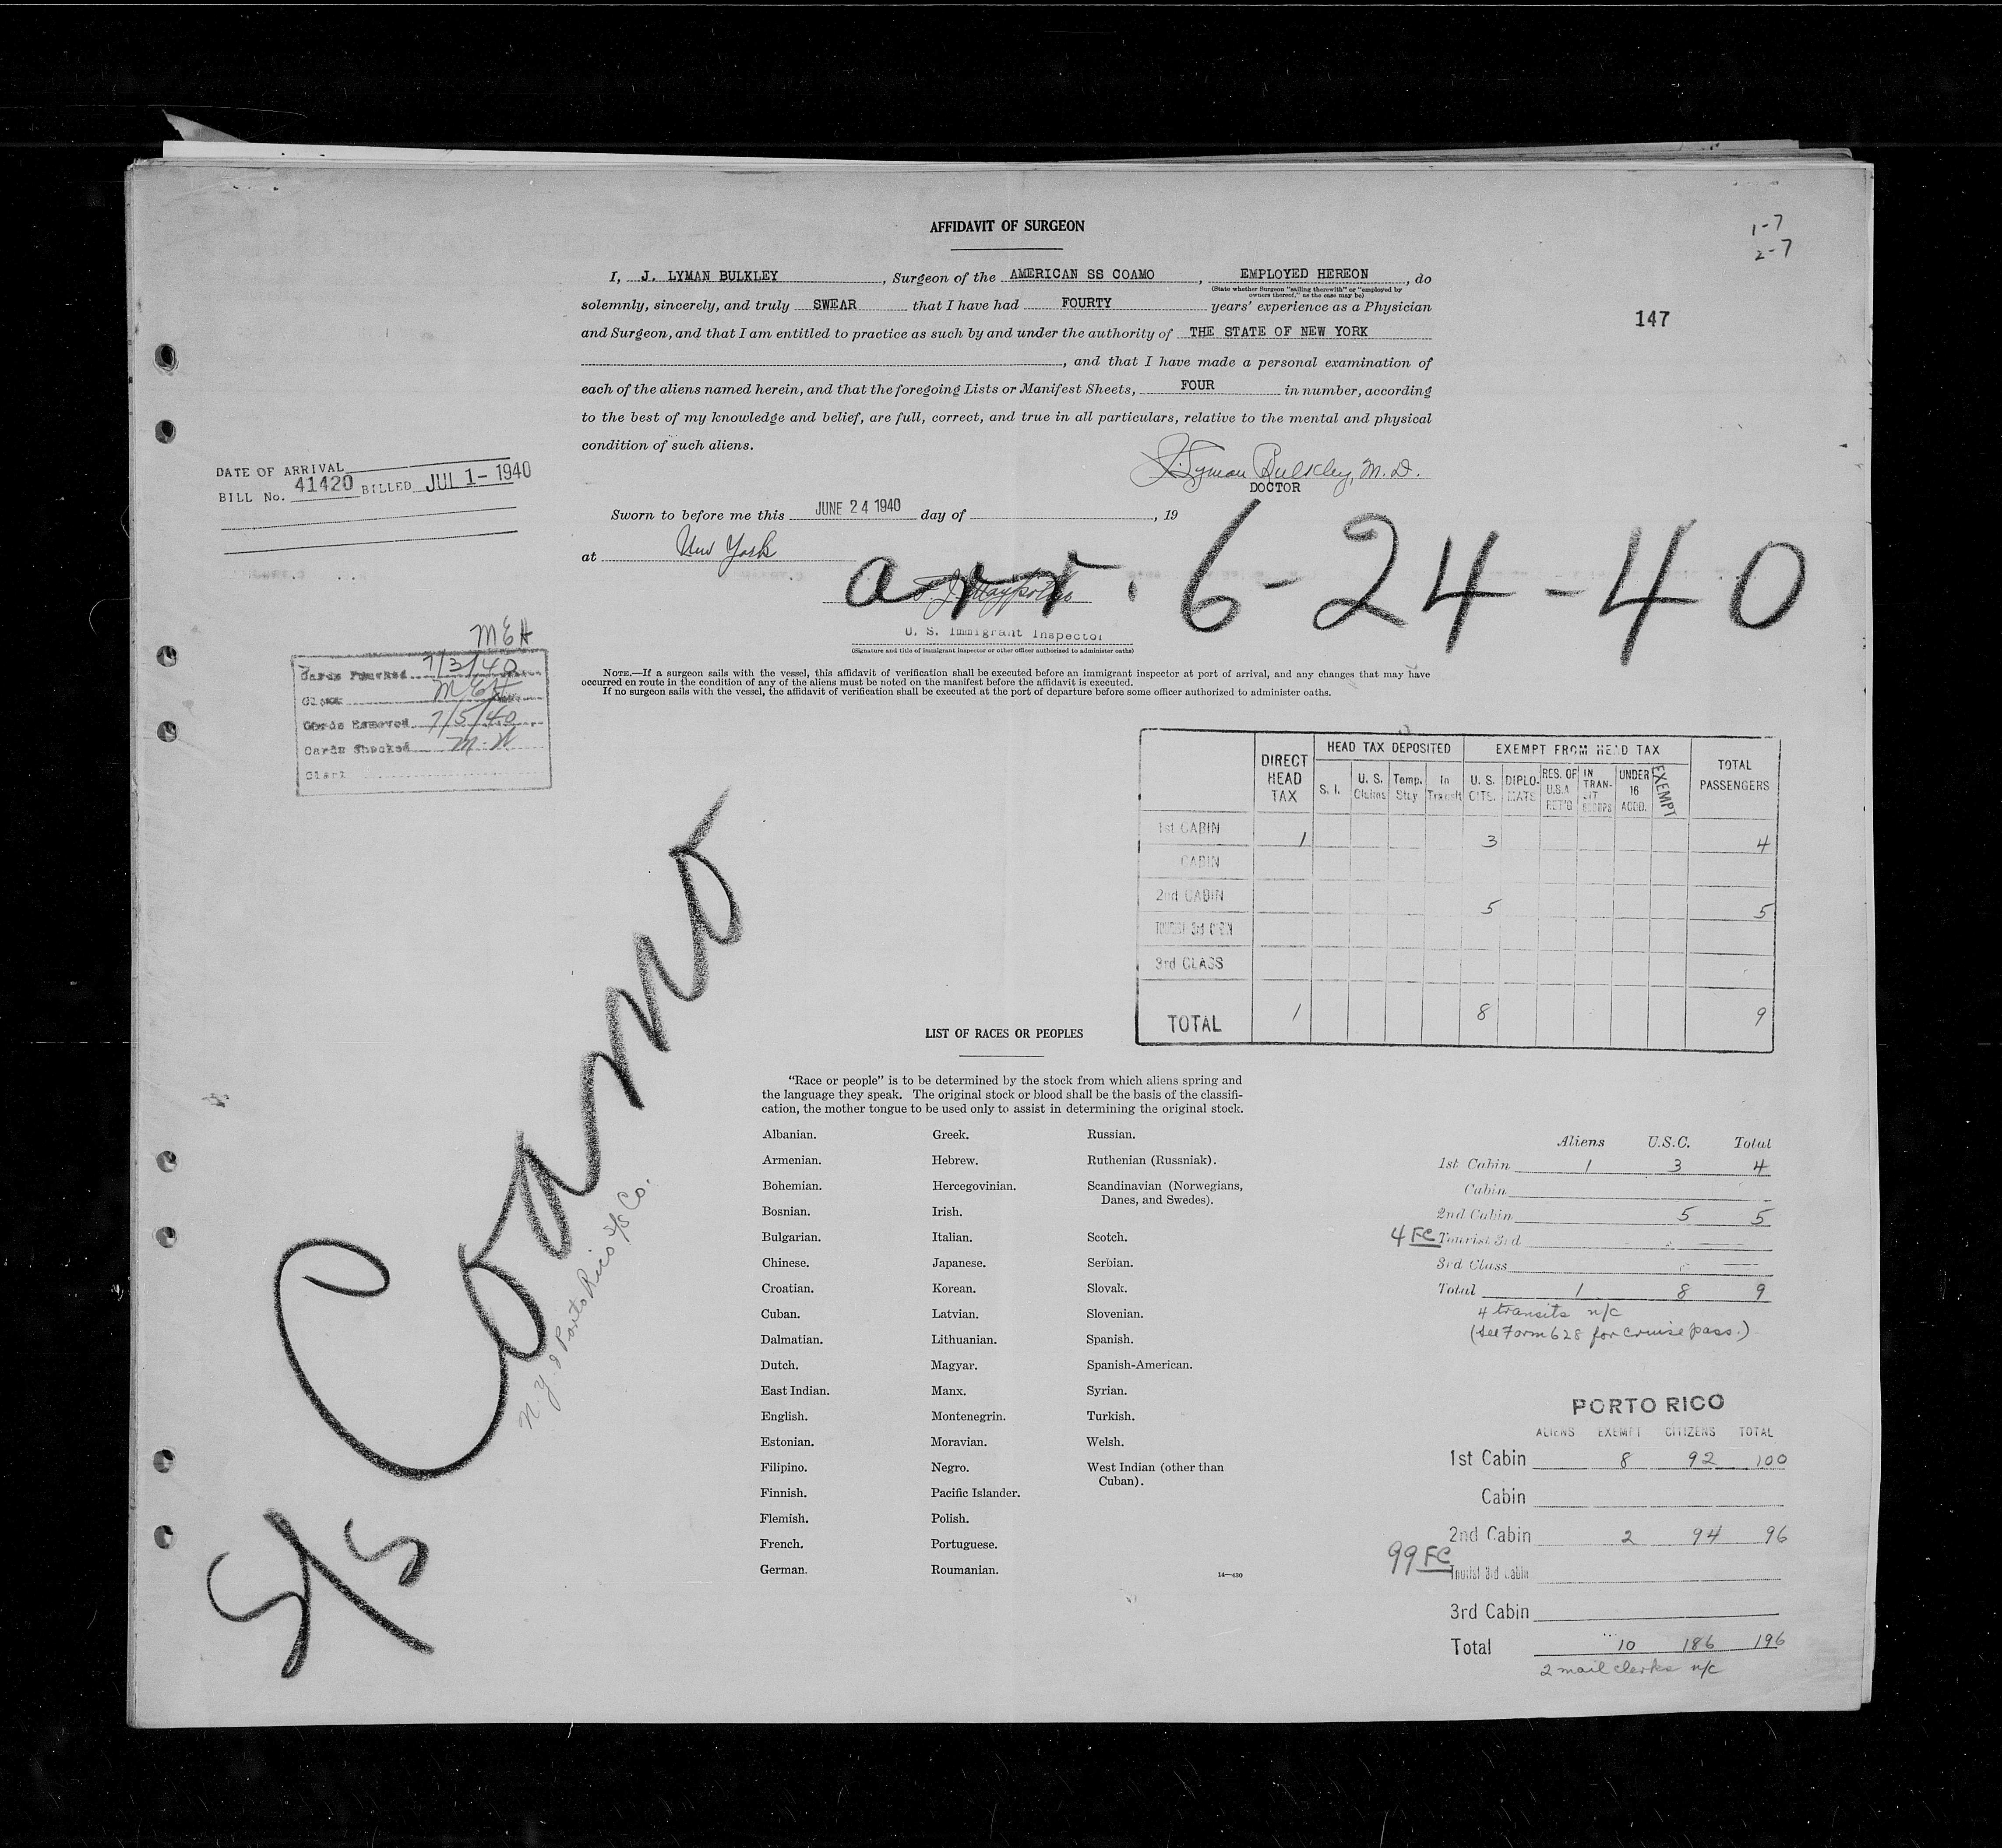 1-7
2-7
147
AFFIDAVIT OF SURGEON
I, J. LYMAN BULKLEY, Surgeon of the AMERICAN SS COAMO, EMPLOYED HEREON, do
(State whether Surgeon "sailing therewith" or "employed by
owners thereof," as the case may be)
solemnly, sincerely, and truly SWEAR that I have had FOURTY years' experience as a Physician
and Surgeon, and that I am entitled to practice as such by and under the authority of THE STATE OF NEW YORK
, and that I have made a personal examination of
each of the aliens named herein, and that the foregoing Lists or Manifest Sheets, FOUR in number, according
to the best of my knowledge and belief, are full, correct, and true in all particulars, relative to the mental and physical
condition of such aliens.
J. Lyman Bulkley, M.D.
DOCTOR
DATE OF ARRIVAL
BILL No. 41420 BILLED JUL 1- 1940
Sworn to before me this JUNE 24 1940 day of , 19
at New York
arr. 6-24-40
U. S. Immigrant Inspector
(Signature and title of immigrant inspector or other officer authorized to administer oaths)
NOTE.—If a surgeon sails with the vessel, this affidavit of verification shall be executed before an immigrant inspector at port of arrival, and any changes that may have
occurred en route in the condition of any of the aliens must be noted on the manifest before the affidavit is executed.
If no surgeon sails with the vessel, the affidavit of verification shall be executed at the port of departure before some officer authorized to administer oaths.
MEH
Cards Punched 7/3/40
MEH
7/5/40
Cards Checked M.W
Clerk
DIRECT HEAD TAX
HEAD TAX DEPOSITED
EXEMPT FROM HEAD TAX
TOTAL PASSENGERS
S. I. U. S. Claims Temp. Stay In Transit U. S. CITS. DIPLO-MATS RES. OF U.S.A RET'G IN TRAN-SIT UNDER 16 ACCD. EXEMPT
1st CABIN 1 3 4
CABIN
2nd CABIN 5 5
TOURIST 3rd CABIN
3rd CLASS
TOTAL 1 8 9
LIST OF RACES OR PEOPLES
"Race or people" is to be determined by the stock from which aliens spring and
the language they speak. The original stock or blood shall be the basis of the classifi-
cation, the mother tongue to be used only to assist in determining the original stock.
Albanian.
Armenian.
Bohemian.
Bosnian.
Bulgarian.
Chinese.
Croatian.
Cuban.
Dalmatian.
Dutch.
East Indian.
English.
Estonian.
Filipino.
Finnish.
Flemish.
French.
German.
Greek.
Hebrew.
Hercegovinian.
Irish.
Italian.
Japanese.
Korean.
Latvian.
Lithuanian.
Magyar.
Manx.
Montenegrin.
Moravian.
Negro.
Pacific Islander.
Polish.
Portuguese.
Roumanian.
Russian.
Ruthenian (Russniak).
Scandinavian (Norwegians,
Danes, and Swedes).
Scotch.
Serbian.
Slovak.
Slovenian.
Spanish.
Spanish-American.
Syrian.
Turkish.
Welsh.
West Indian (other than
Cuban).
14—430
S/S Coamo
N.Y. & Porto Rico S/S Co.
Aliens U.S.C. Total
1st Cabin 1 3 4
Cabin
2nd Cabin 5 5
4 FC Tourist 3rd
3rd Class
Total 1 8 9
4 transits n/c
(See Form 628 for cruise pass.)
PORTO RICO
ALIENS EXEMPT CITIZENS TOTAL
1st Cabin 8 92 100
Cabin
2nd Cabin 2 94 96
99 FC Tourist 3rd Cabin
3rd Cabin
Total 10 186 196
2 mail clerks n/c